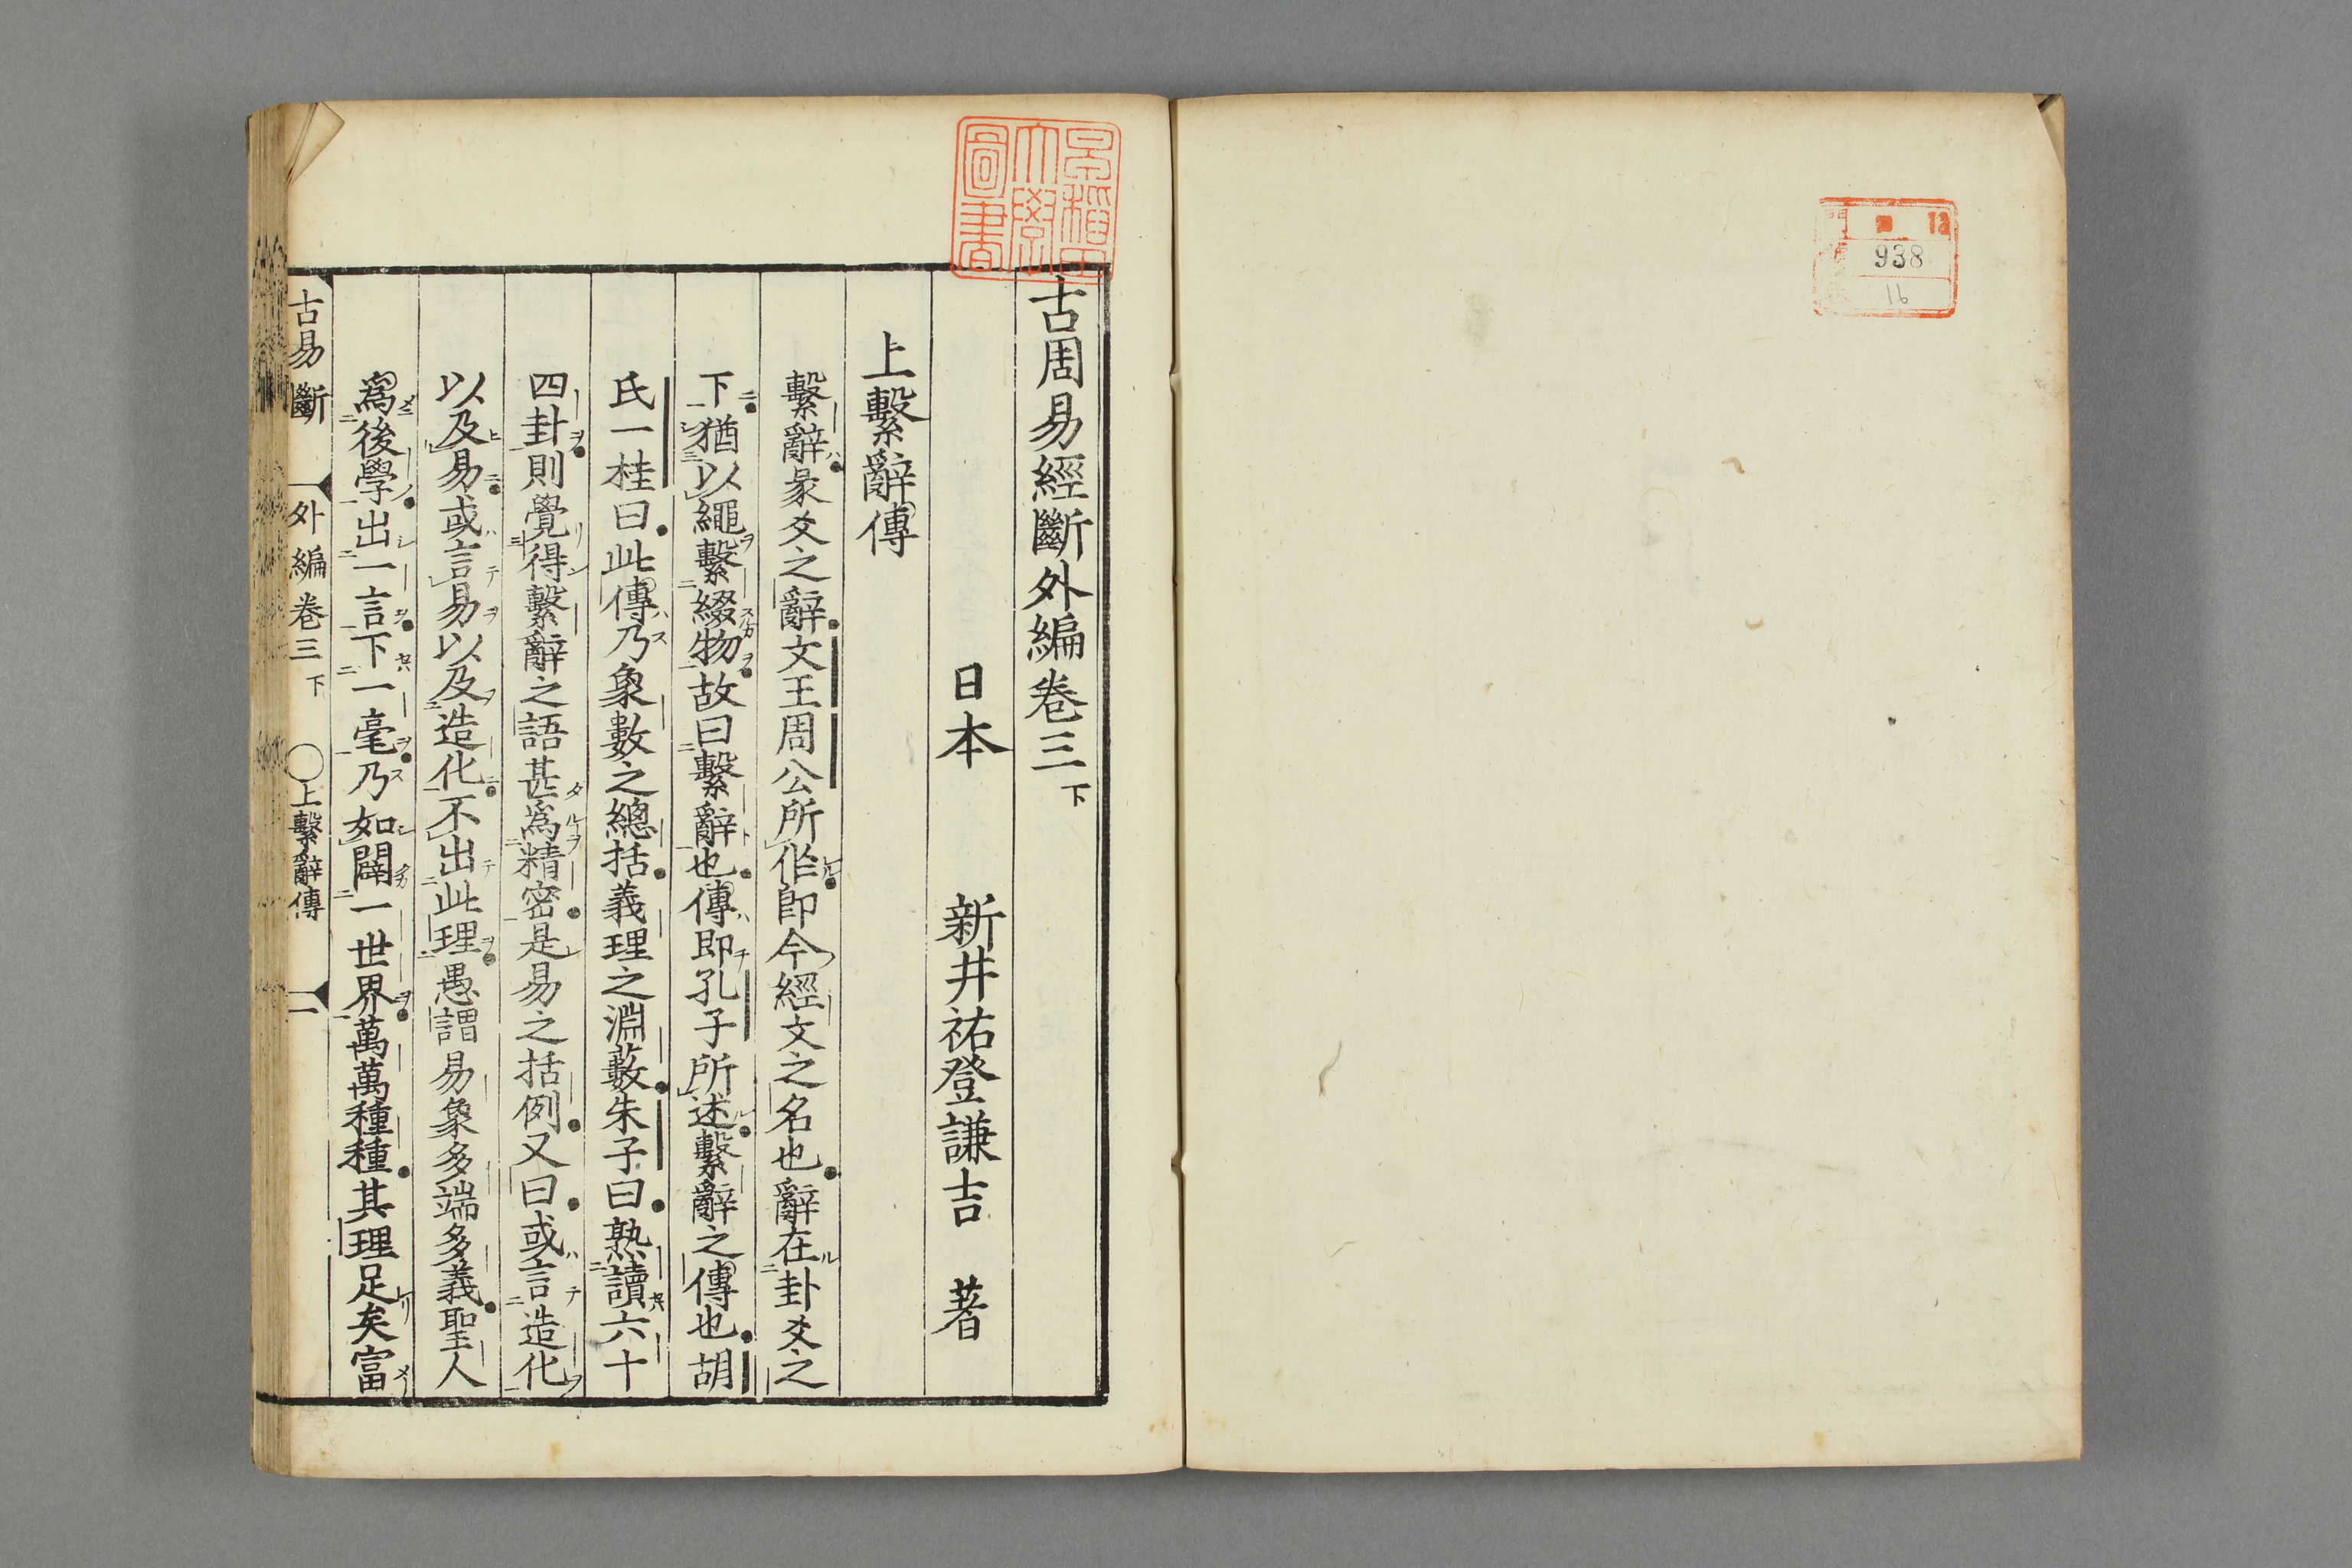 938
16
古周易經斷外編卷三下
日本 新井祐登謙吉 著
上繫辭傳
繫辭彖爻之辭文王周公所作即今經文之名也辭在卦爻之
下猶以繩繫綴物故曰繫辭也傳即孔子所述繫辭之傳也胡
氏一桂曰此傳乃象數之總括義理之淵藪朱子曰熟讀六十
四卦則覺得繫辭之語甚爲精密是易之括例又曰或言造化
以及易或言易以及造化不出此理愚謂易象多端多義聖人
爲後學出一言下一毫乃如闢一世界萬萬種種其理足矣富
古易斷 外編卷三下 〇上繫辭傳 一
早稻田大學圖書